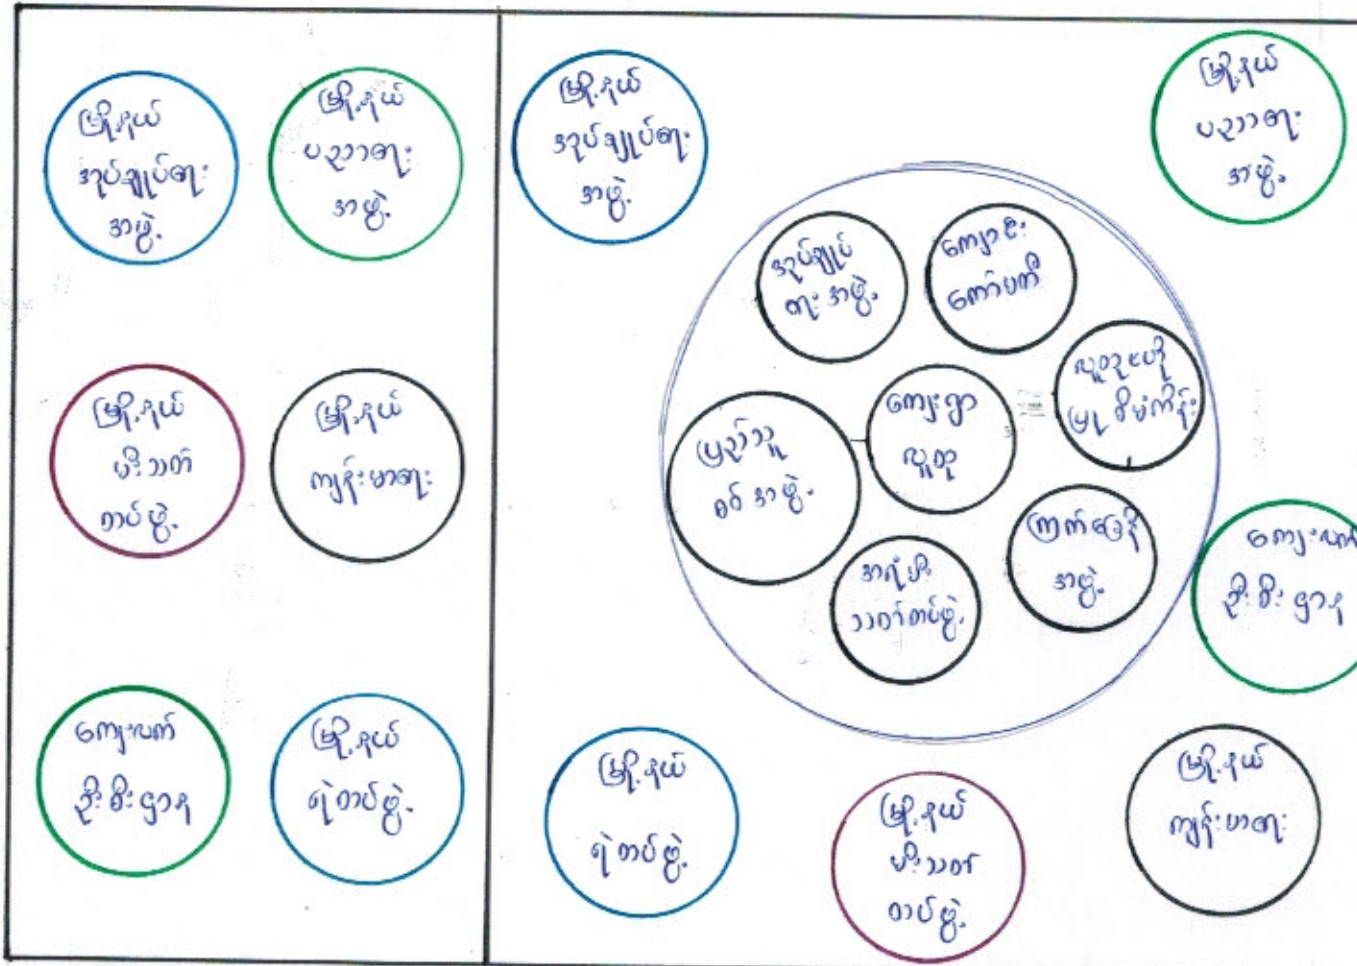 မြို့နယ်
အုပ်ချုပ်ရေး
အဖွဲ့
မြို့နယ်
ပညာရေး
အဖွဲ့
မြို့နယ်
မီးသတ်
တပ်ဖွဲ့
မြို့နယ်
ကျန်းမာရေး
ကျေးလက်
ဦးစီးဌာန
မြို့နယ်
ရဲတပ်ဖွဲ့
မြို့နယ်
အုပ်ချုပ်ရေး
အဖွဲ့
မြို့နယ်
ပညာရေး
အဖွဲ့
အုပ်ချုပ်
ရေးအဖွဲ့
ကျောင်း
ကော်မတီ
လူထုဗဟို
ပြုစီမံကိန်း
ပြည်သူ
စစ်အဖွဲ့
ကျေးရွာ
လူထု
ကြက်ခြေနီ
အဖွဲ့
အရံမီး
သတ်တပ်ဖွဲ့
ကျေးလက်
ဦးစီးဌာန
မြို့နယ်
ရဲတပ်ဖွဲ့
မြို့နယ်
မီးသတ်
တပ်ဖွဲ့
မြို့နယ်
ကျန်းမာရေး